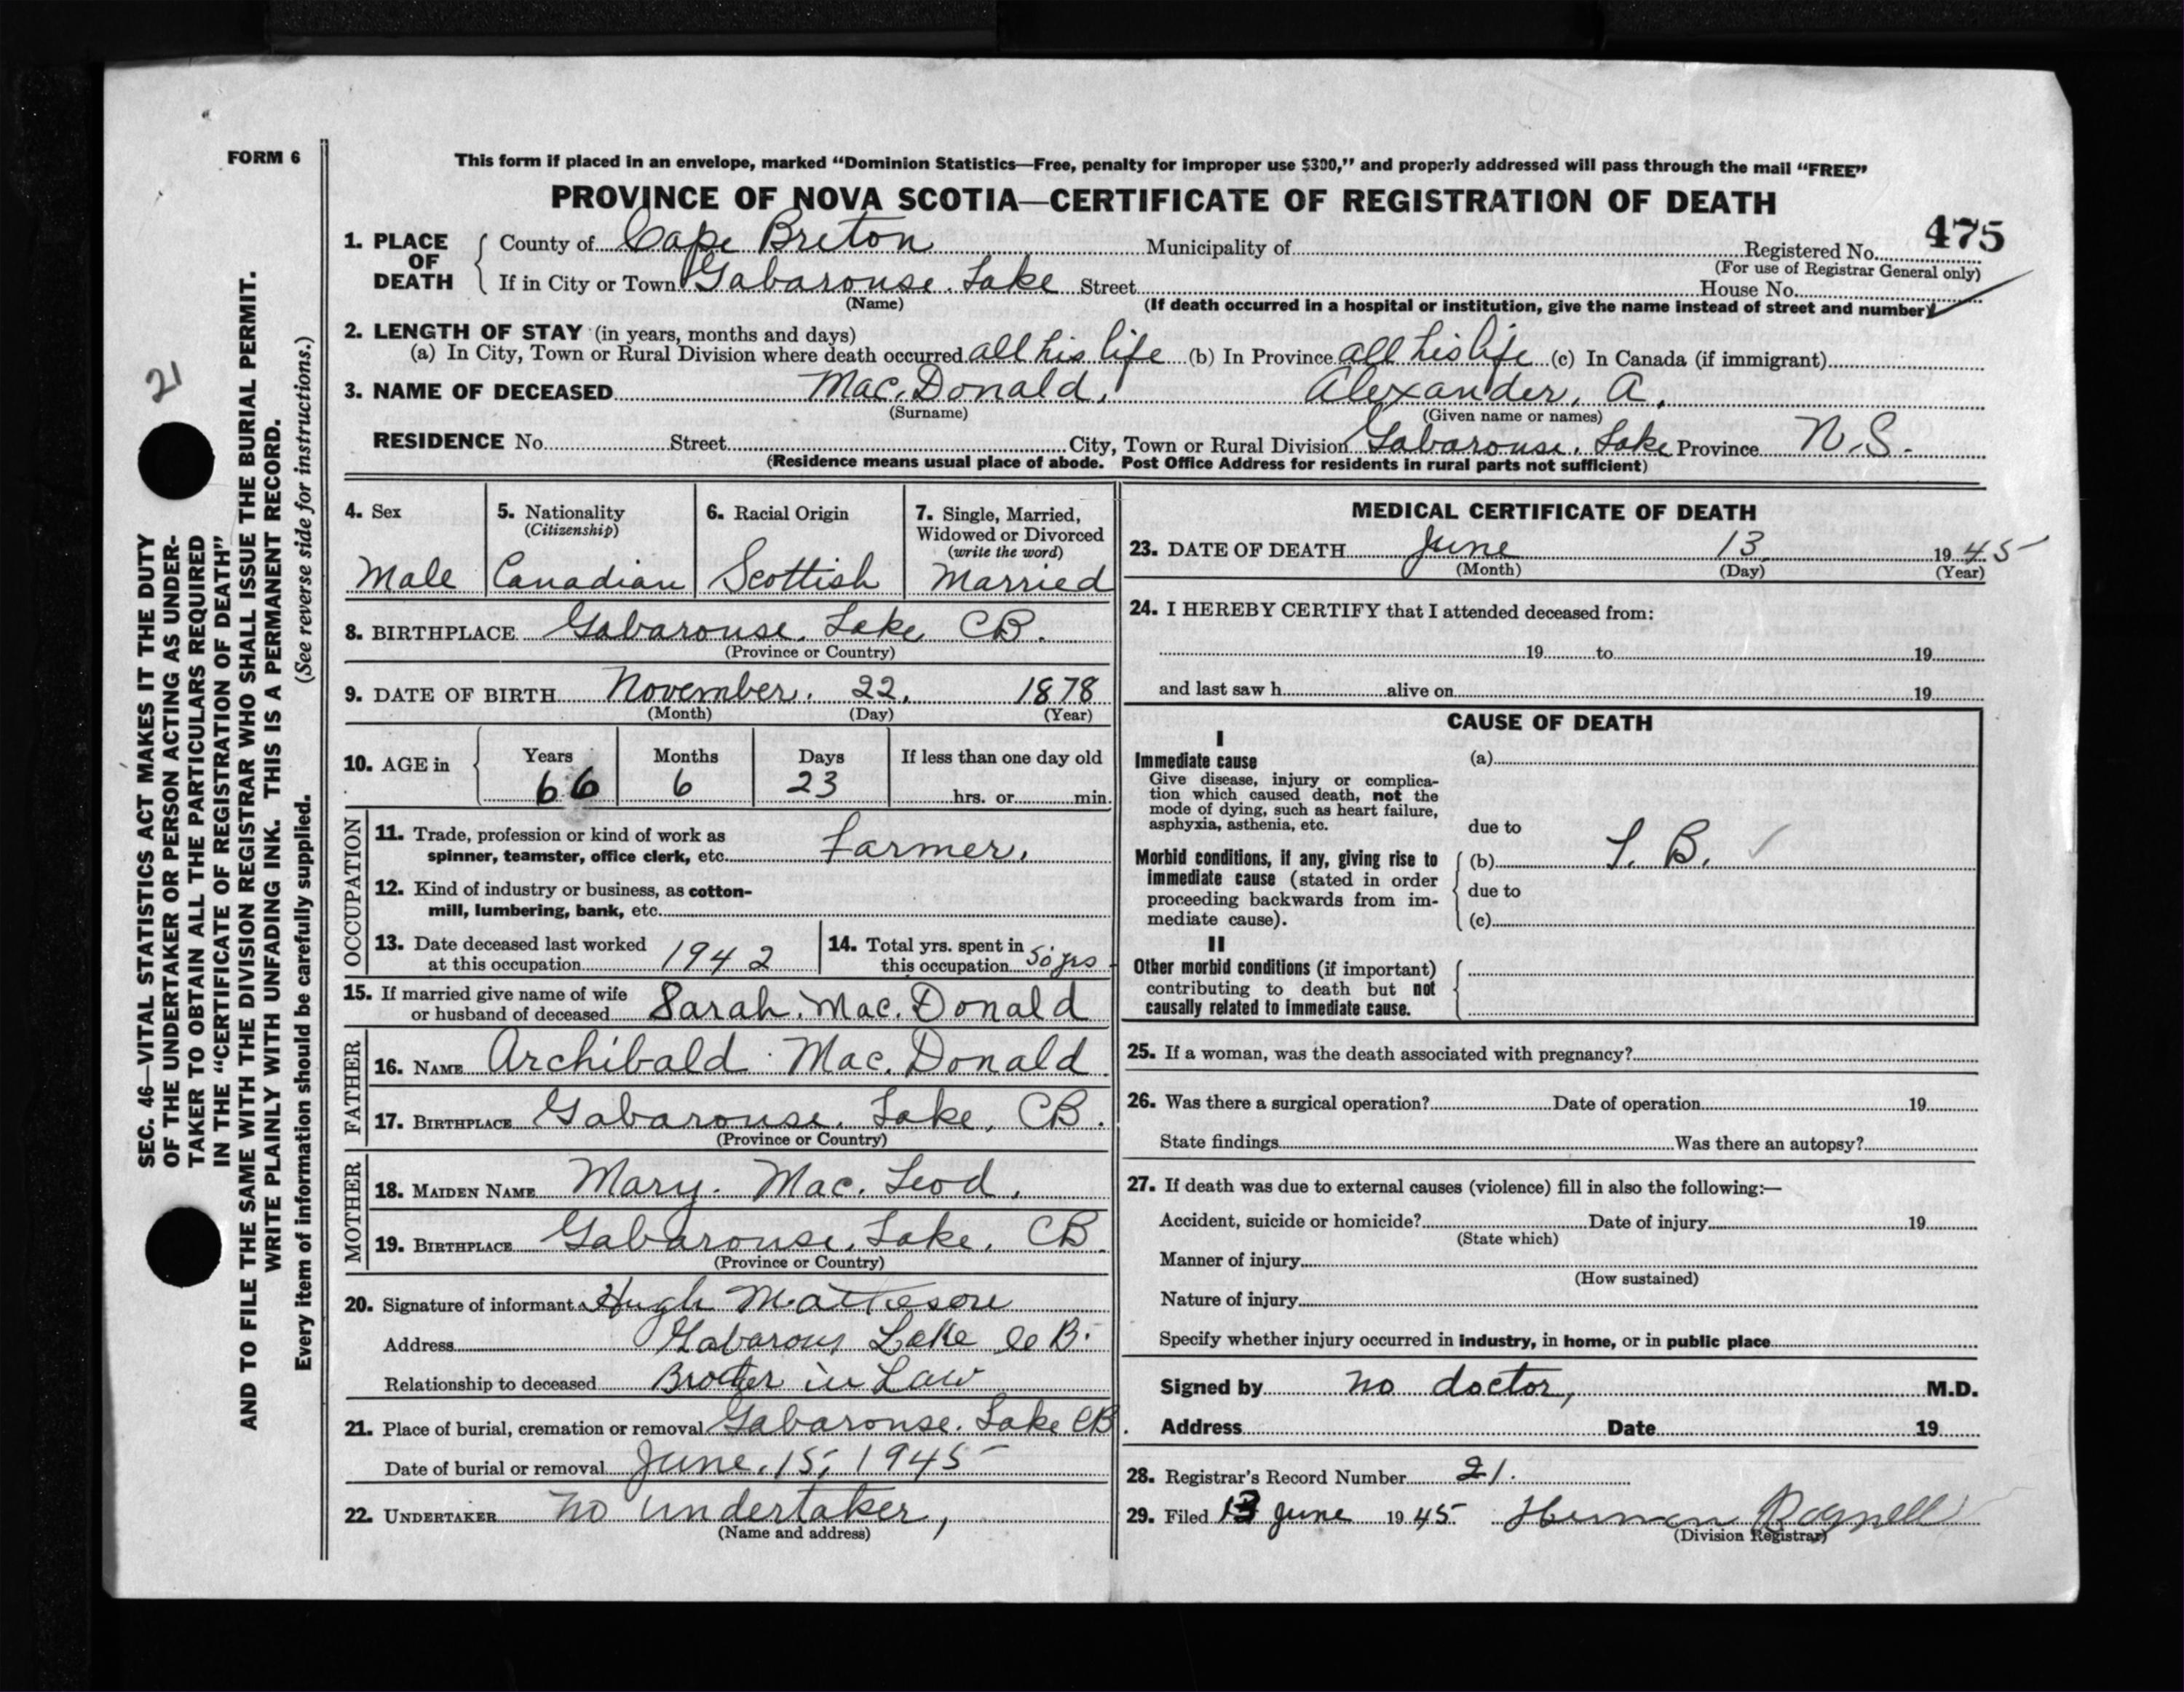 FORM 6
This form if placed in an envelope, marked “Dominion Statistics—Free, penalty for improper use $300,” and properly addressed will pass through the mail “FREE”
PROVINCE OF NOVA SCOTIA—CERTIFICATE OF REGISTRATION OF DEATH
475
1. PLACE OF DEATH { County of Cape Breton Municipality of Registered No.
(For use of Registrar General only)
If in City or Town Gabarouse. Lake Street House No.
(Name) (If death occurred in a hospital or institution, give the name instead of street and number)
2. LENGTH OF STAY (in years, months and days)
(a) In City, Town or Rural Division where death occurred all his life (b) In Province all his life (c) In Canada (if immigrant)
3. NAME OF DECEASED Mac. Donald, Alexander, A.
(Surname) (Given name or names)
RESIDENCE No. Street City, Town or Rural Division Gabarouse, Lake Province N.S.
(Residence means usual place of abode. Post Office Address for residents in rural parts not sufficient)
4. Sex
Male
5. Nationality
(Citizenship)
Canadian
6. Racial Origin
Scottish
7. Single, Married,
Widowed or Divorced
(write the word)
Married
8. BIRTHPLACE Gabarouse. Lake CB.
(Province or Country)
9. DATE OF BIRTH November. 22, 1878
(Month) (Day) (Year)
10. AGE in { Years Months Days If less than one day old
66 6 23 hrs. or min.
OCCUPATION
11. Trade, profession or kind of work as
spinner, teamster, office clerk, etc. Farmer,
12. Kind of industry or business, as cotton-
mill, lumbering, bank, etc.
13. Date deceased last worked
at this occupation 1942
14. Total yrs. spent in
this occupation 50 yrs
15. If married give name of wife
or husband of deceased Sarah. Mac. Donald
FATHER
16. NAME Archibald Mac. Donald
17. BIRTHPLACE Gabarouse. Lake, CB.
(Province or Country)
MOTHER
18. MAIDEN NAME Mary. Mac. Leod,
19. BIRTHPLACE Gabarouse, Lake, CB.
(Province or Country)
20. Signature of informant Hugh Matheson
Address Gabarous Lake C B.
Relationship to deceased Brother in Law
21. Place of burial, cremation or removal Gabarouse. Lake CB.
Date of burial or removal June. 15, 1945
22. UNDERTAKER no undertaker,
(Name and address)
MEDICAL CERTIFICATE OF DEATH
23. DATE OF DEATH June 13 1945
(Month) (Day) (Year)
24. I HEREBY CERTIFY that I attended deceased from:
19 to 19
and last saw h alive on 19
CAUSE OF DEATH
I
Immediate cause
Give disease, injury or complica-
tion which caused death, not the
mode of dying, such as heart failure,
asphyxia, asthenia, etc.
(a)
due to
Morbid conditions, if any, giving rise to
immediate cause (stated in order
proceeding backwards from im-
mediate cause).
(b) T. B.
due to
(c)
II
Other morbid conditions (if important)
contributing to death but not
causally related to immediate cause.
25. If a woman, was the death associated with pregnancy?
26. Was there a surgical operation? Date of operation 19
State findings Was there an autopsy?
27. If death was due to external causes (violence) fill in also the following:—
Accident, suicide or homicide? Date of injury 19
(State which)
Manner of injury
(How sustained)
Nature of injury
Specify whether injury occurred in industry, in home, or in public place
Signed by no doctor, M.D.
Address Date 19
28. Registrar's Record Number 21.
29. Filed 13 June 1945 Herman Bagnell
(Division Registrar)
21
SEC. 46—VITAL STATISTICS ACT MAKES IT THE DUTY
OF THE UNDERTAKER OR PERSON ACTING AS UNDER-
TAKER TO OBTAIN ALL THE PARTICULARS REQUIRED
IN THE “CERTIFICATE OF REGISTRATION OF DEATH”
AND TO FILE THE SAME WITH THE DIVISION REGISTRAR WHO SHALL ISSUE THE BURIAL PERMIT.
WRITE PLAINLY WITH UNFADING INK. THIS IS A PERMANENT RECORD.
Every item of information should be carefully supplied. (See reverse side for instructions.)